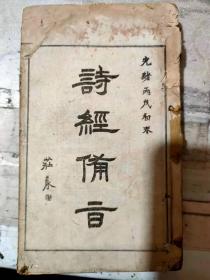 光緒丙戌初冬
詩經備旨
莊泰